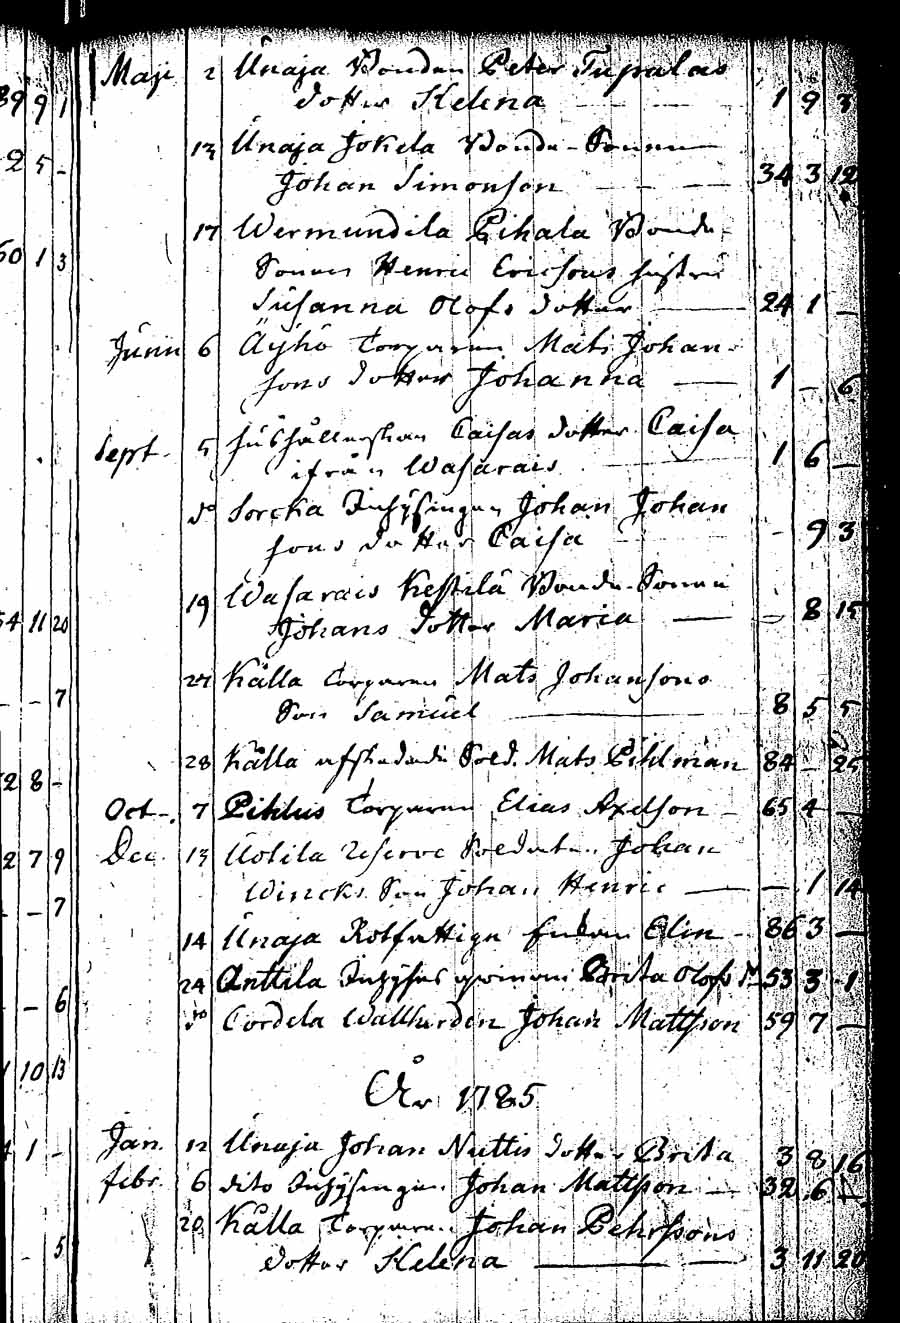 Maji 2 Ünaja Bonden Peter Tupalas
dotter Helena — 1 9 3
13 Ünaja Jokela Bonde-Sonen
Johan Simonson — 34 3 12
17 Wermundila Pihala Bonde-
Sonen Henric Ericsons hustru
Susanna Olofs dotter — 24 1 —
Junii 6 Äyhö Torparen Mats Johan-
sons dotter Johanna — 1 - 6
Sept. 5 hushållerskan Caisas dotter Caisa
ifrån Wasarais 1 6 —
do Sorcka Inhysingen Johan Johan
sons dotter Caisa - 9 3
19 Wasarais Kestilä Bonde-Sonen
Johans dotter Maria — - 8 15
27 Källa Torparen Mats Johansons
Son Samuel — 8 5 5
28 Källa afskedade Sold. Mats Pihlman 84 - 25
Oct. 7 Pihlus Torparen Elias Axelson - 65 4 —
Dec. 13 Uotila Reserve Soldaten Johan
Wincks Son Johan Henric — - 1 14
14 Ünaja Rotfattige Enkan Elin - 86 3 —
24 Anttila Inhyses qvinnan Brita Olofs Dr 53 3 1
do Cordela Johan Mattsson 59 7 —
År 1785
Jan. 12 Ünaja Johan Nuttis dotter Brita 3 8 16
febr. 6 dito Inhysingen Johan Mattsson — 32 6
20 Källa Torparen Johan Pehrssons
dotter Helena — 3 11 20
39 9 1
2 5 -
60 1 3
54 11 20
- - 7
2 8 -
2 7 9
- - 7
- - 6
1 10 13
1 -
5